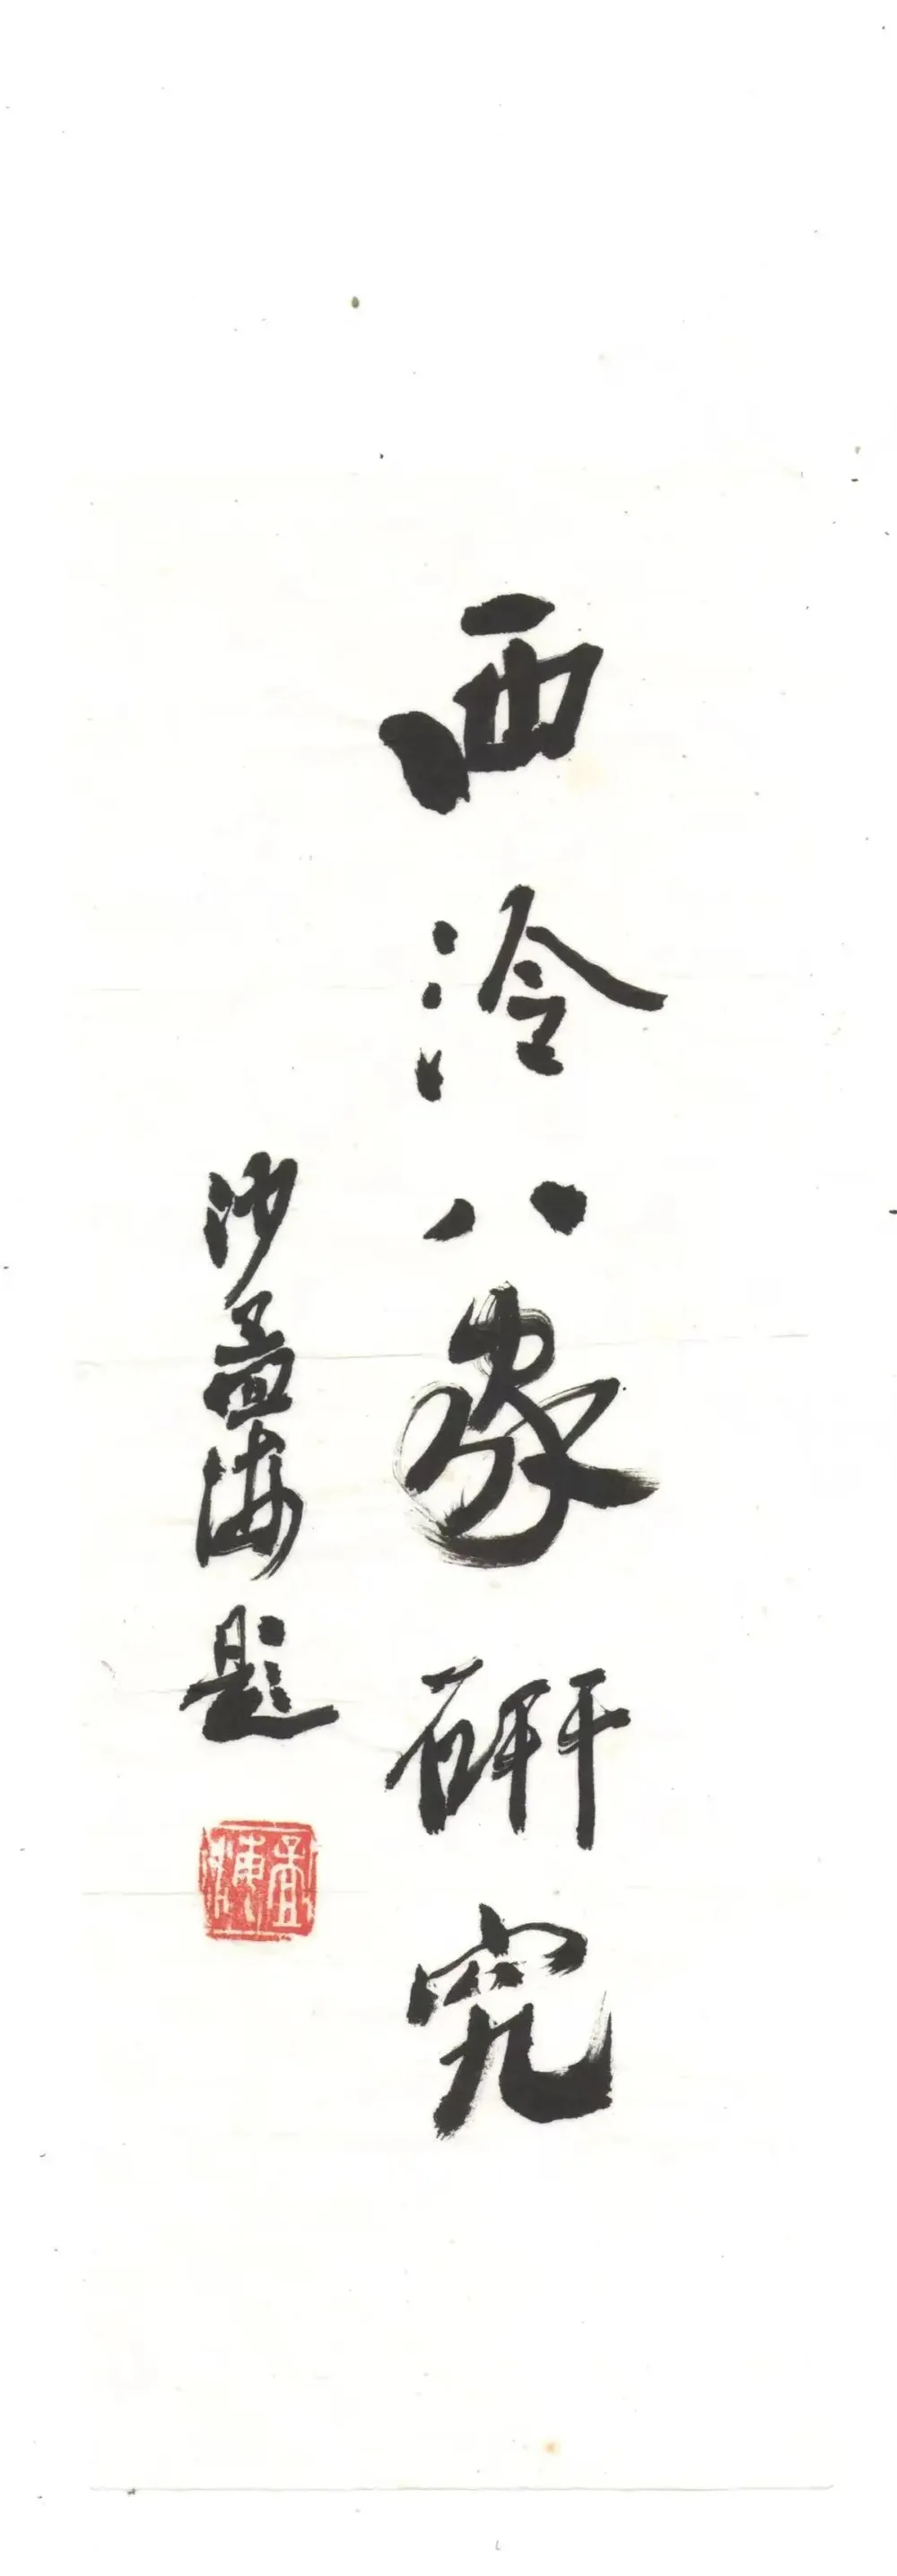 西泠八家研究
沙孟海题
孟海